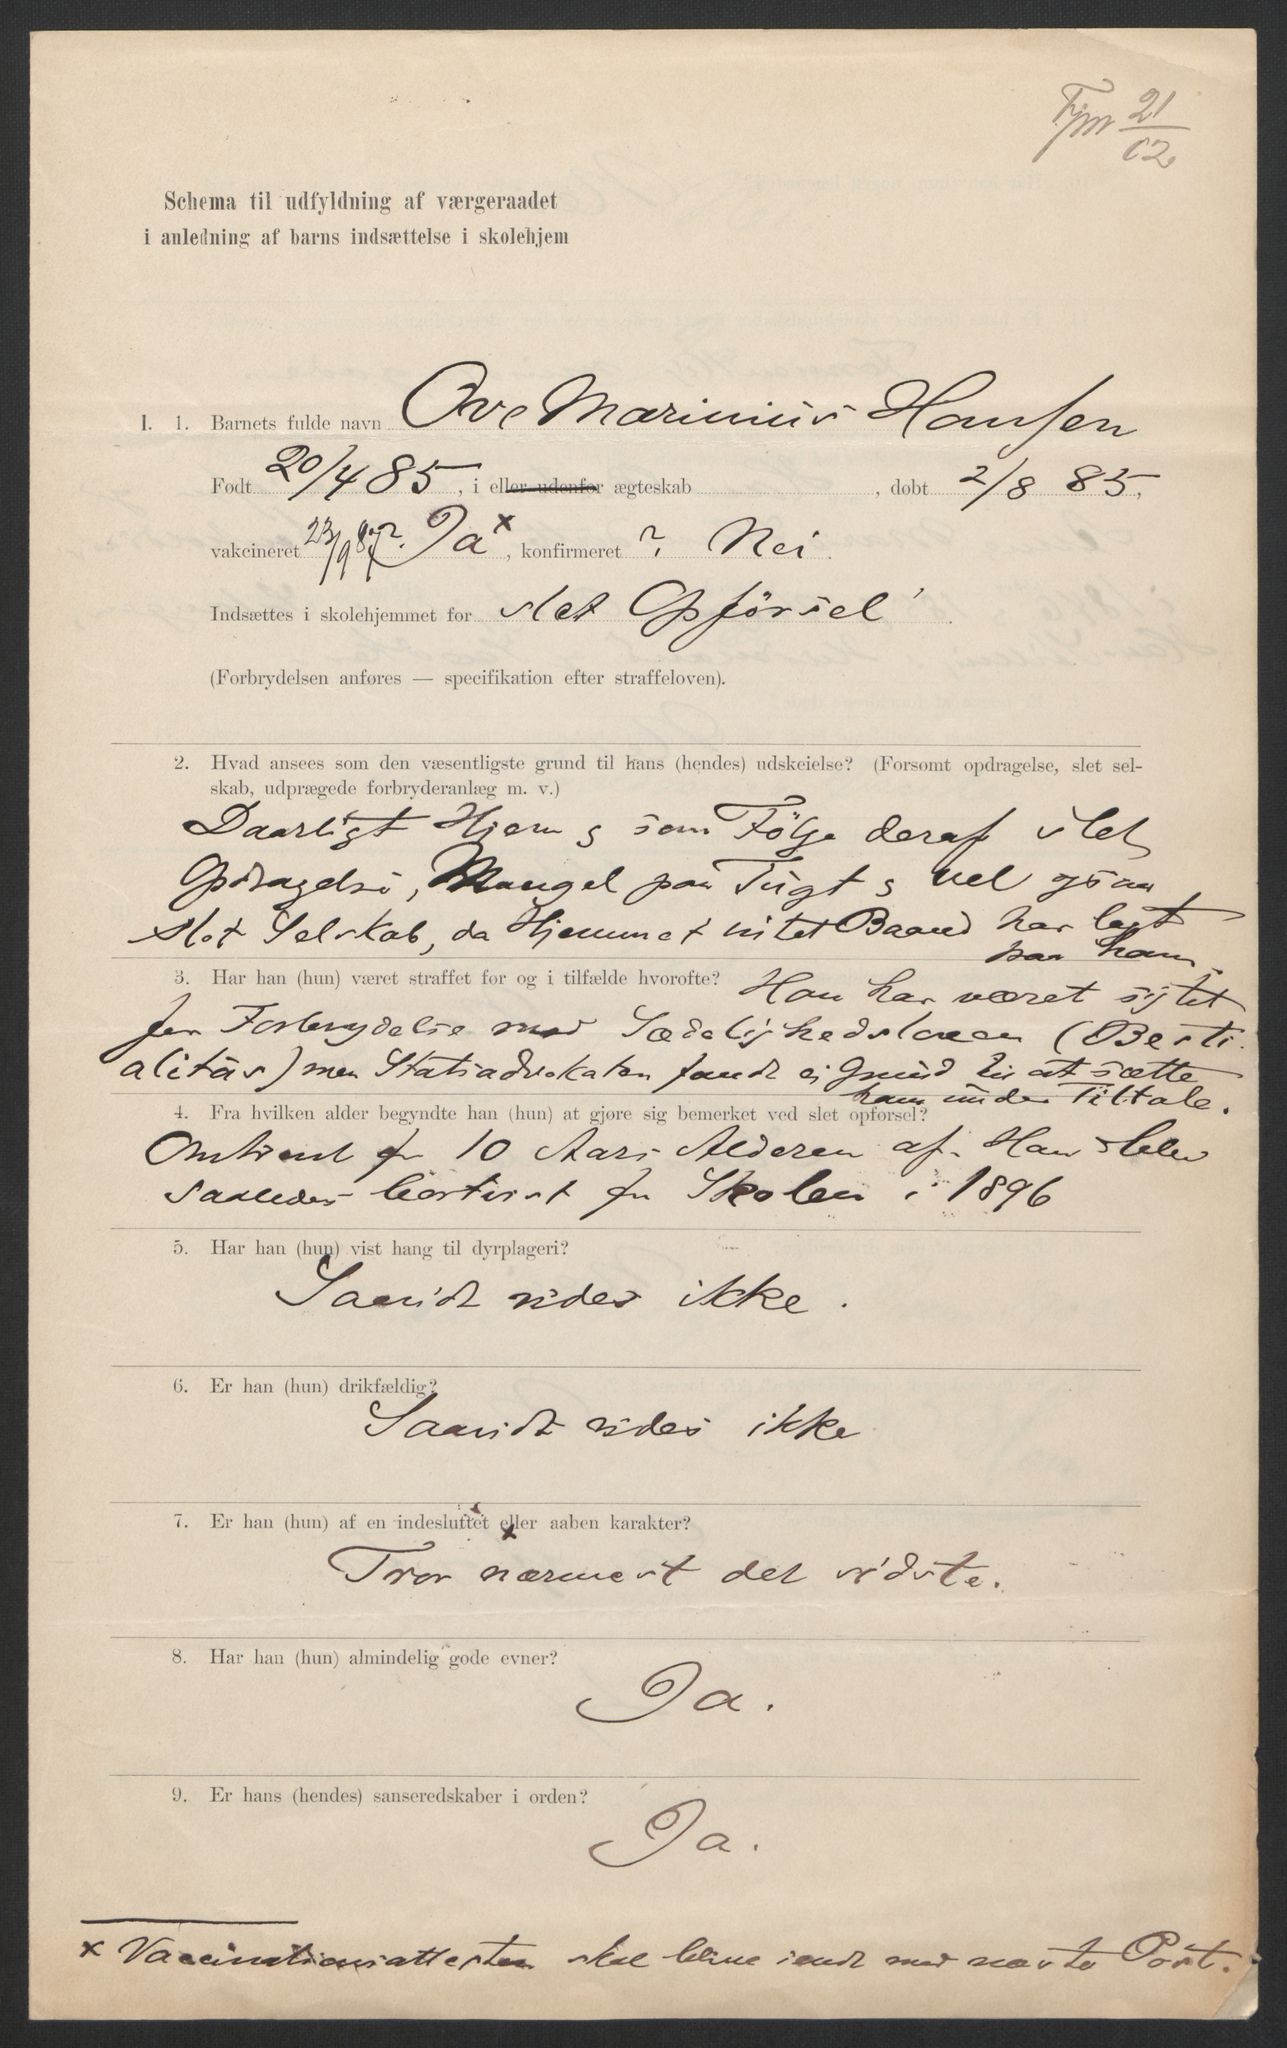 Fjm 21/02
Schema til udfyldning af værgeraadet
i anledning af barns indsættelse i skolehjem
I. 1. Barnets fulde navn Ove Marinius Hansen
Født 20/4 85, i eller udenfor ægteskab , døbt 2/8 85.
vakcineret 23/9 87 ?. Ja x, konfirmeret ?. Nei.
Indsættes i skolehjemmet for slet Opførsel
(Forbrydelsen anføres — specifikation efter straffeloven).
2. Hvad ansees som den væsentligste grund til hans (hendes) udskeielse? (Forsømt opdragelse, slet sel-
skab, udprægede forbryderanlæg m. v.)
Daarligt Hjem og som Følge deraf slet
Opdragelse, Mangel paa Tugt og vel ogsaa
slet Selskab, da Hjemmet intet Baand har lagt
paa ham.
3. Har han (hun) været straffet før og i tilfælde hvorofte? Han har været sigtet
for Forbrydelse mod Sædelighedsloven (Besti-
alitäs) men Statsadvokaten fandt ei Grund til at sætte
ham under Tiltale.
4. Fra hvilken alder begyndte han (hun) at gjøre sig bemerket ved slet opførsel?
Omtrent fra 10 Aars Alderen af. Han blev
saaledes bortvist fra Skolen i 1896
5. Har han (hun) vist hang til dyrplageri?
Saavidt vides ikke.
6. Er han (hun) drikfældig?
Saavidt vides ikke
7. Er han (hun) af en indesluttet eller aaben karakter?
Tror nærmest det sidste.
8. Har han (hun) almindelig gode evner?
Ja.
9. Er hans (hendes) sanseredskaber i orden?
Ja.
x Vaccinationsattesten skal blive sendt med næste Post.